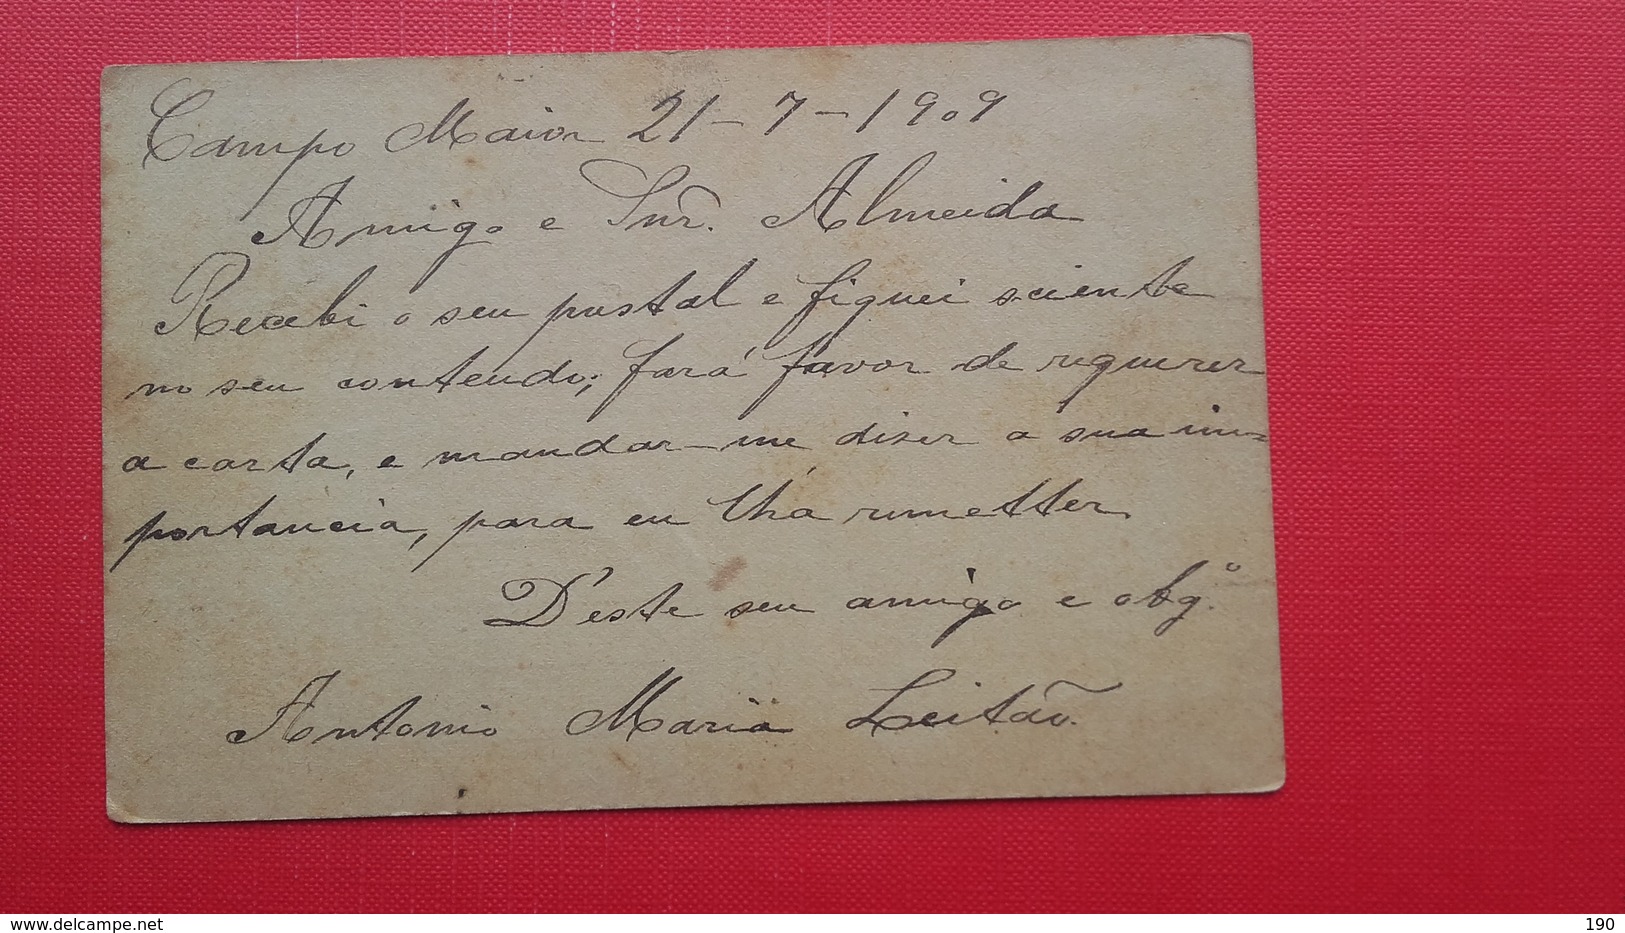 Campo Maior 21-7-1909
Amigo e Snr. Almeida
Recebi o seu postal e fiquei sciente
no seu contendo; fará favor de requerer
a carta, e mandar-me dizer a sua im=
portancia, para eu lhá remetter.
D'este seu amigo e obg.º
Antonio Maria Leitão.
www.delcampe.net
190